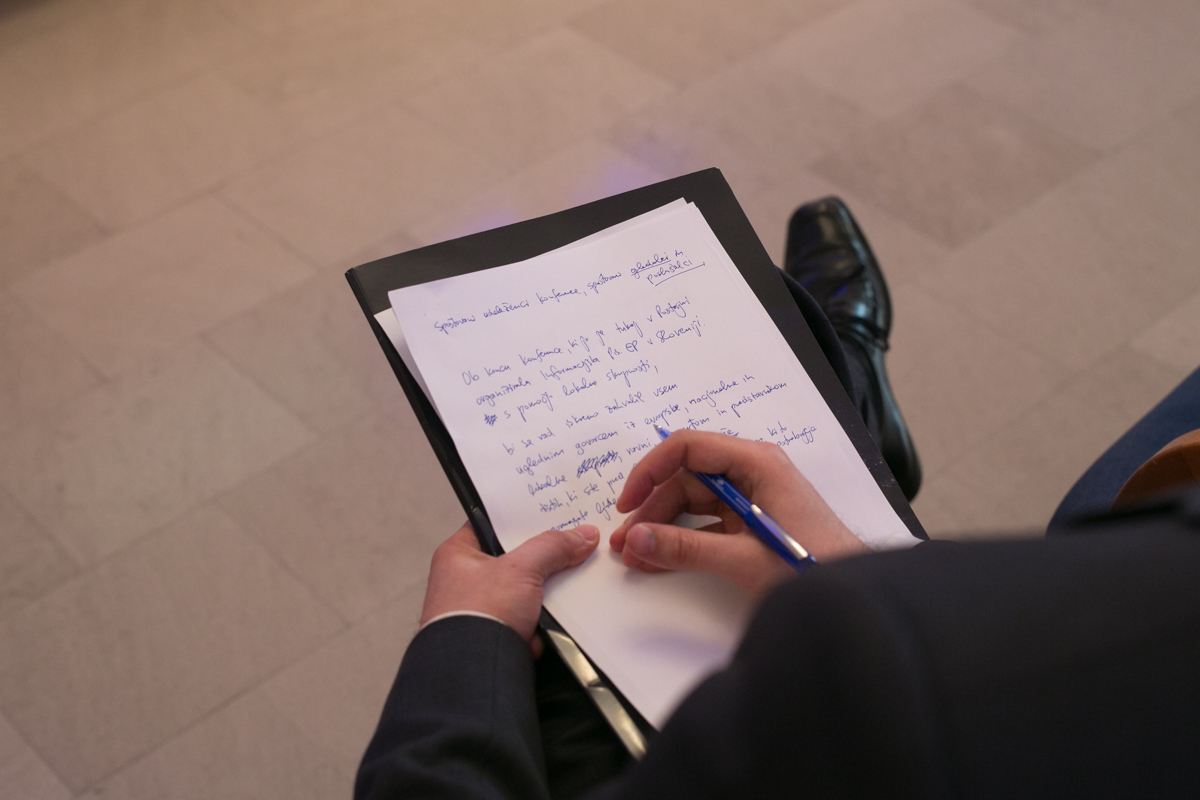 Spoštovani udeleženci konference, spoštovani gledalci in
poslušalci
Ob koncu konference, ki jo je tukaj v Postojni
organizirala Informacijska Pis. EP v Sloveniji
s pomočjo lokalne skupnosti,
bi se rad iskreno zahvalil vsem
uglednim govorcem iz evropske, nacionalne in
lokalne ravni in predstavnikom
tistih, ki ste pred ki to
pomagate